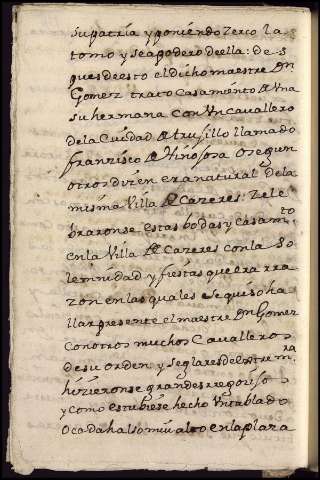 su patria y poniendo zerco la
tomo y se apodero de ella: des
pues de esto el dicho maestre Dn
Gomez trato casamiento de Una
su hermana con Un cavallero
de la Ciudad de trusillo llamado
franzisco de Hinojosa o segun
otros dizen era natural de la
misma Villa de Cazeres: zele
braronse estas bodas y casamto
en la Villa de Cazeres con la so
lemnidad y fiestas que era rra
zon en las quales se quiso ha
llar presente el maestre Dn Gomez
con otros muchos Cavalleros
de su orden y seglares de
hizieronse grandes regozijos
y como estubiese hecho Un tablado
o cadahalso mui alto en la plaza